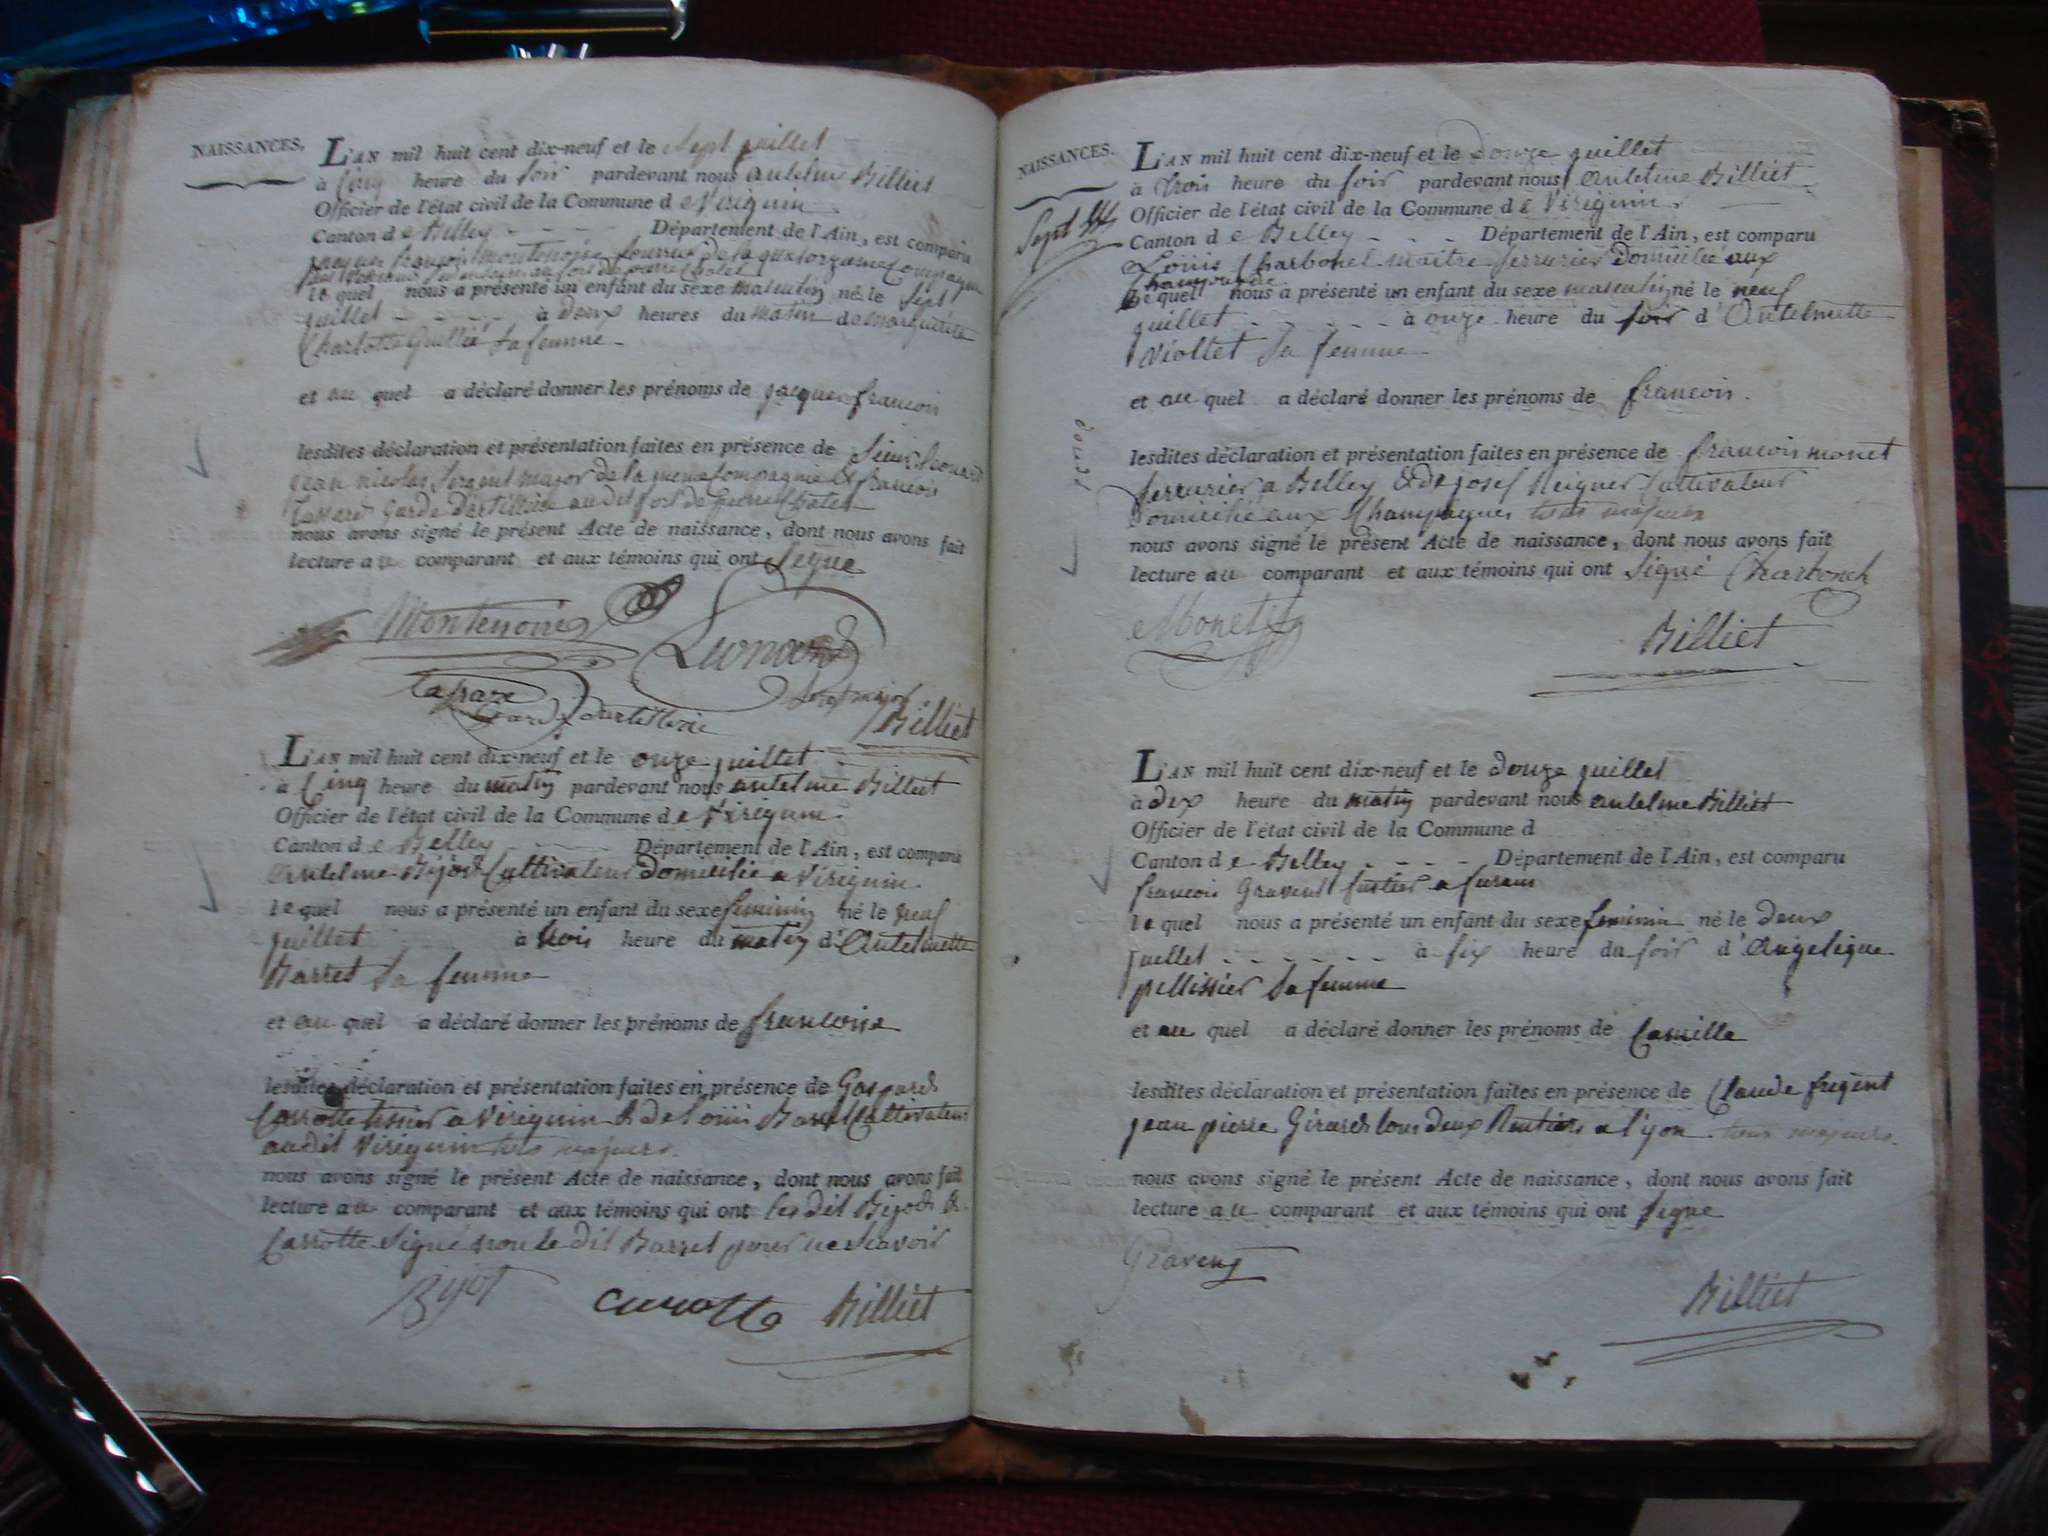 NAISSANCES.
L'AN mil huit cent dix-neuf et le Sept juillet
à Cinq heure du soir pardevant nous antelme Billiet
Officier de l'état civil de la Commune de Virignin
Canton de Belley Département de l'Ain, est comparu
jacques françois montenoise fourrier de la quatorzieme Compagnie
le quel nous a présenté un enfant du sexe masculin né le Sept
juillet à deux heures du matin de marguerite
Charlotte Gullié sa femme
et au quel a déclaré donner les prénoms de jacques francois
lesdites déclaration et présentation faites en présence de Sieur Leonard
jean nicolas Sergent major de la meme Compagnie & francois
garde d'artillerie au dit fort de pierre Chatel
nous avons signé le présent Acte de naissance, dont nous avons fait
lecture au comparant et aux témoins qui ont Signé
Montenoise
Leonard
Sergt major
garde d'artillerie
Billiet
L'AN mil huit cent dix-neuf et le onze juillet
à Cinq heure du matin pardevant nous antelme Billiet
Officier de l'état civil de la Commune de Virignin.
Canton de Belley Département de l'Ain, est comparu
Antelme Bijot Cultivateur domicilié a Virignin.
le quel nous a présenté un enfant du sexe feminin né le neuf
juillet à trois heure du matin d'Antelmette
Barret sa femme
et au quel a déclaré donner les prénoms de francoise
lesdites déclaration et présentation faites en présence de Gaspard
Carrotte tissier a Virignin & de Loüis Barret Cultivateur
audit Virignin tous majeurs.
nous avons signé le présent Acte de naissance, dont nous avons fait
lecture au comparant et aux témoins qui ont les dit Bijot &
Carrotte Signé non le dit Barret pour ne Scavoir
Bijot
Billiet
NAISSANCES.
Sept
L'AN mil huit cent dix-neuf et le douze juillet
à trois heure du soir pardevant nous antelme Billiet
Officier de l'état civil de la Commune de Virignin.
Canton de Belley Département de l'Ain, est comparu
Loüis Charbonet maitre serrurier domicilié aux
quel nous a présenté un enfant du sexe masculin né le neuf
juillet à onze heure du soir d'Antelmette
Viollet sa femme
et au quel a déclaré donner les prénoms de francois.
lesdites déclaration et présentation faites en présence de francois monet
serrurier a Belley & de josef Cultivateur
domicilié aux Champagnes tous majeurs
nous avons signé le présent Acte de naissance, dont nous avons fait
lecture au comparant et aux témoins qui ont Signé Charbonet
Monet
Billiet
L'AN mil huit cent dix-neuf et le douze juillet
à dix heure du matin pardevant nous antelme Billiet
Officier de l'état civil de la Commune d
Canton de Belley Département de l'Ain, est comparu
francois Gravent a
le quel nous a présenté un enfant du sexe feminin né le deux
juillet à six heure du soir d'Angelique
pellissier sa femme
et au quel a déclaré donner les prénoms de Camille
lesdites déclaration et présentation faites en présence de Claude
jean pierre Girard tous deux Rentiers a Lyon tous majeurs.
nous avons signé le présent Acte de naissance, dont nous avons fait
lecture au comparant et aux témoins qui ont Signe
Gravent
Billiet